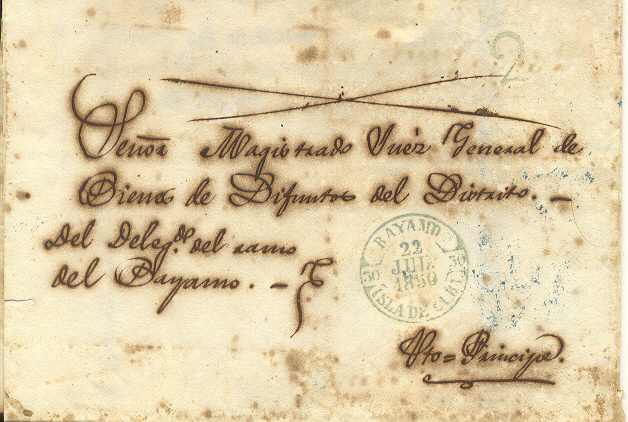 2
Señor Magistrado Juéz General de
Bienes de Difuntos del Distrito. —
Del Deleg.do del ramo
del Bayamo. —
BAYAMO
22
JUL.
1850
ISLA DE CUBA
Pto = Principe.